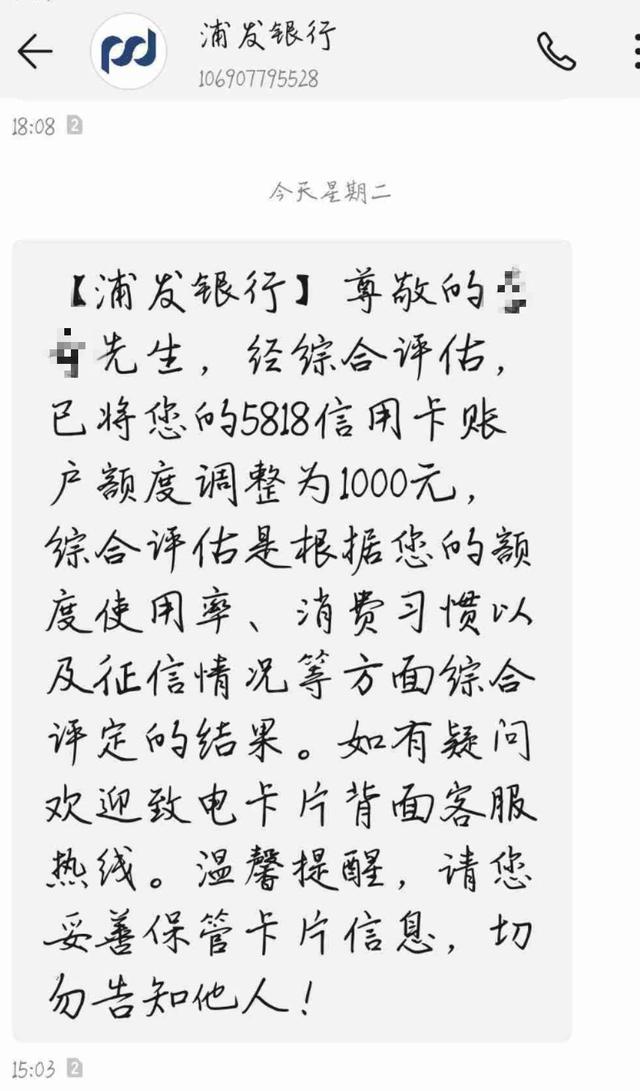 浦发银行
106907795528
18:08 2
今天星期二
【浦发银行】尊敬的
先生，经综合评估，
已将您的5818信用卡账
户额度调整为1000元，
综合评估是根据您的额
度使用率、消费习惯以
及征信情况等方面综合
评定的结果。如有疑问
欢迎致电卡片背面客服
热线。温馨提醒，请您
妥善保管卡片信息，切
勿告知他人！
15:03 2